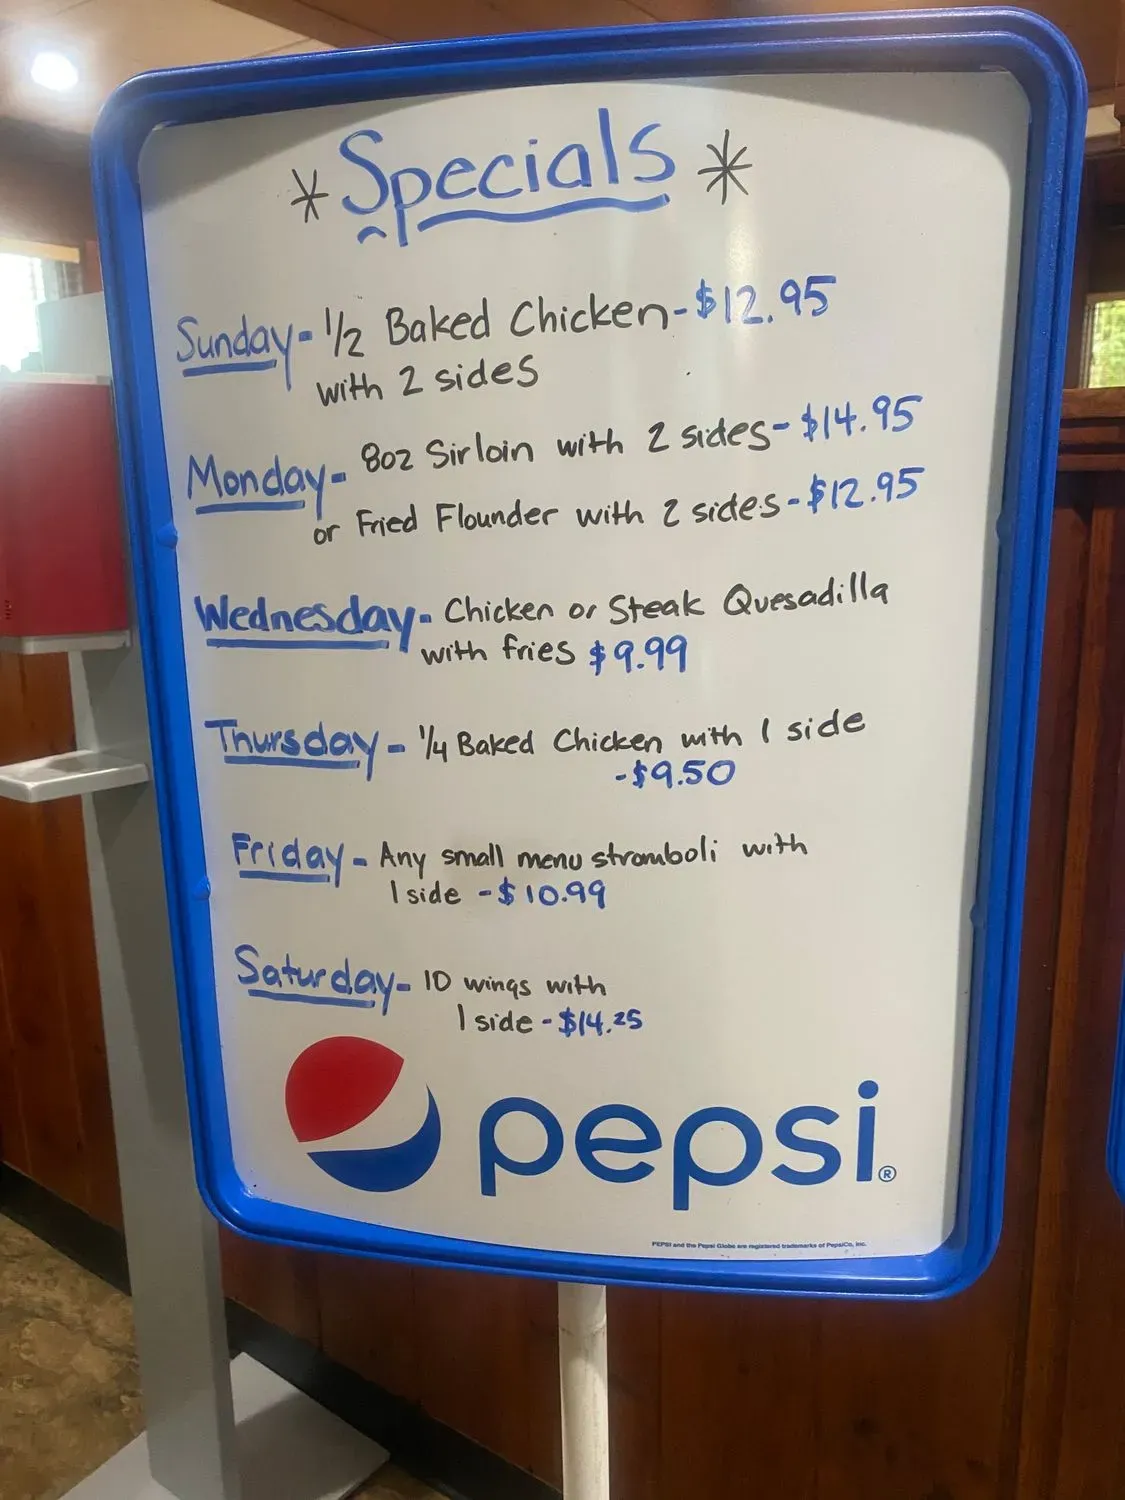 * Specials *
Sunday - 1/2 Baked Chicken - $12.95
with 2 sides
Monday - 8oz Sirloin with 2 sides - $14.95
or Fried Flounder with 2 sides - $12.95
Wednesday - Chicken or Steak Quesadilla
with fries $9.99
Thursday - 1/4 Baked Chicken with 1 side
- $9.50
Friday - Any small menu stromboli with
1 side - $10.99
Saturday - 10 wings with
1 side - $14.25
pepsi®
PEPSI and the Pepsi Globe are registered trademarks of PepsiCo, Inc.